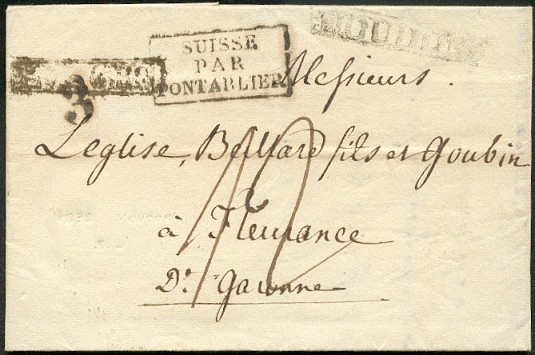 SUISSE
PAR
PONTARLIER
3
Messieurs.
Leglise, Bellard fils et Goubin
à Fleurance
Dt. Garonne